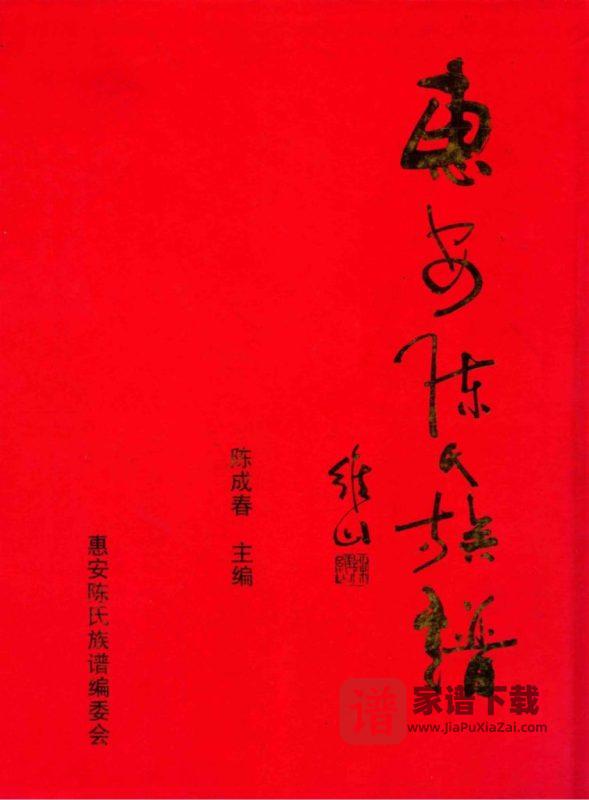 惠安陈氏族谱
維山
陈成春 主编
惠安陈氏族谱编委会
谱
家谱下载
www.JiaPuXiaZai.com